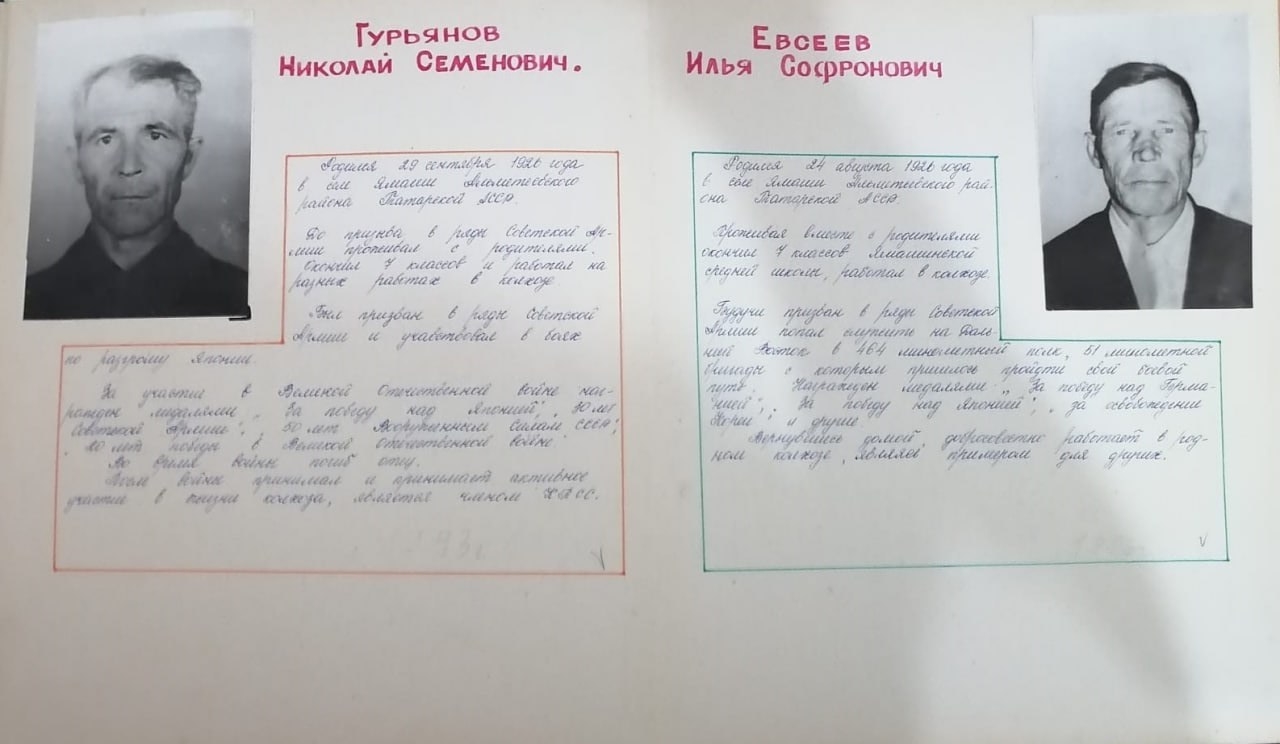 Гурьянов
Николай Семенович.
Родился 29 сентября 1926 года
в селе Ямаши Альметьевского
района Татарской АССР.
До призыва в ряды Советской Ар-
мии проживал с родителями.
Окончил 7 классов и работал на
разных работах в колхозе.
Был призван в ряды Советской
Армии и участвовал в боях
по разгрому Японии.
За участие в Великой Отечественной войне наг-
ражден медалями „За победу над Японией", „30 лет
Советской Армии", „50 лет Вооруженным Силам СССР",
„20 лет победы в Великой Отечественной войне".
Во время войны погиб отец.
После войны принимал и принимает активное
участие в жизни колхоза, является членом КПСС.
Евсеев
Илья Софронович
Родился 24 августа 1926 года
в селе Ямаши Альметьевского рай-
она Татарской АССР.
Проживая вместе с родителями
окончил 7 классов Ямашинской
средней школы, работал в колхозе.
Будучи призван в ряды Советской
Армии попал служить на Даль-
ний Восток в 464 минометный полк, 51 минометной
бригады с которым пришлось пройти свой боевой
путь. Награжден медалями: „За победу над Герма-
нией", „За победу над Японией", „за освобождение
Кореи" и другие.
Вернувшись домой, добросовестно работает в род-
ном колхозе, являясь примером для других.